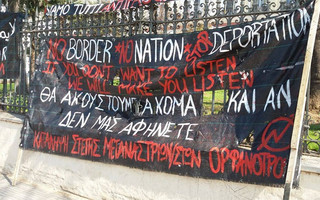 NO BORDER NO NATION STOP DEPORTATION
IF YOU DON'T WANT TO LISTEN
WE WILL MAKE YOU LISTEN
ΘΑ ΑΚΟΥΣΤΟΥΜΕ ΑΚΟΜΑ ΚΑΙ ΑΝ
ΔΕΝ ΜΑΣ ΑΦΗΝΕΤΕ
ΚΑΤΑΛΗΨΗ ΣΤΕΓΗΣ ΜΕΤΑΝΑΣΤΡΙΩΝ/ΣΤΩΝ ΟΡΦΑΝΟΤΡΟ